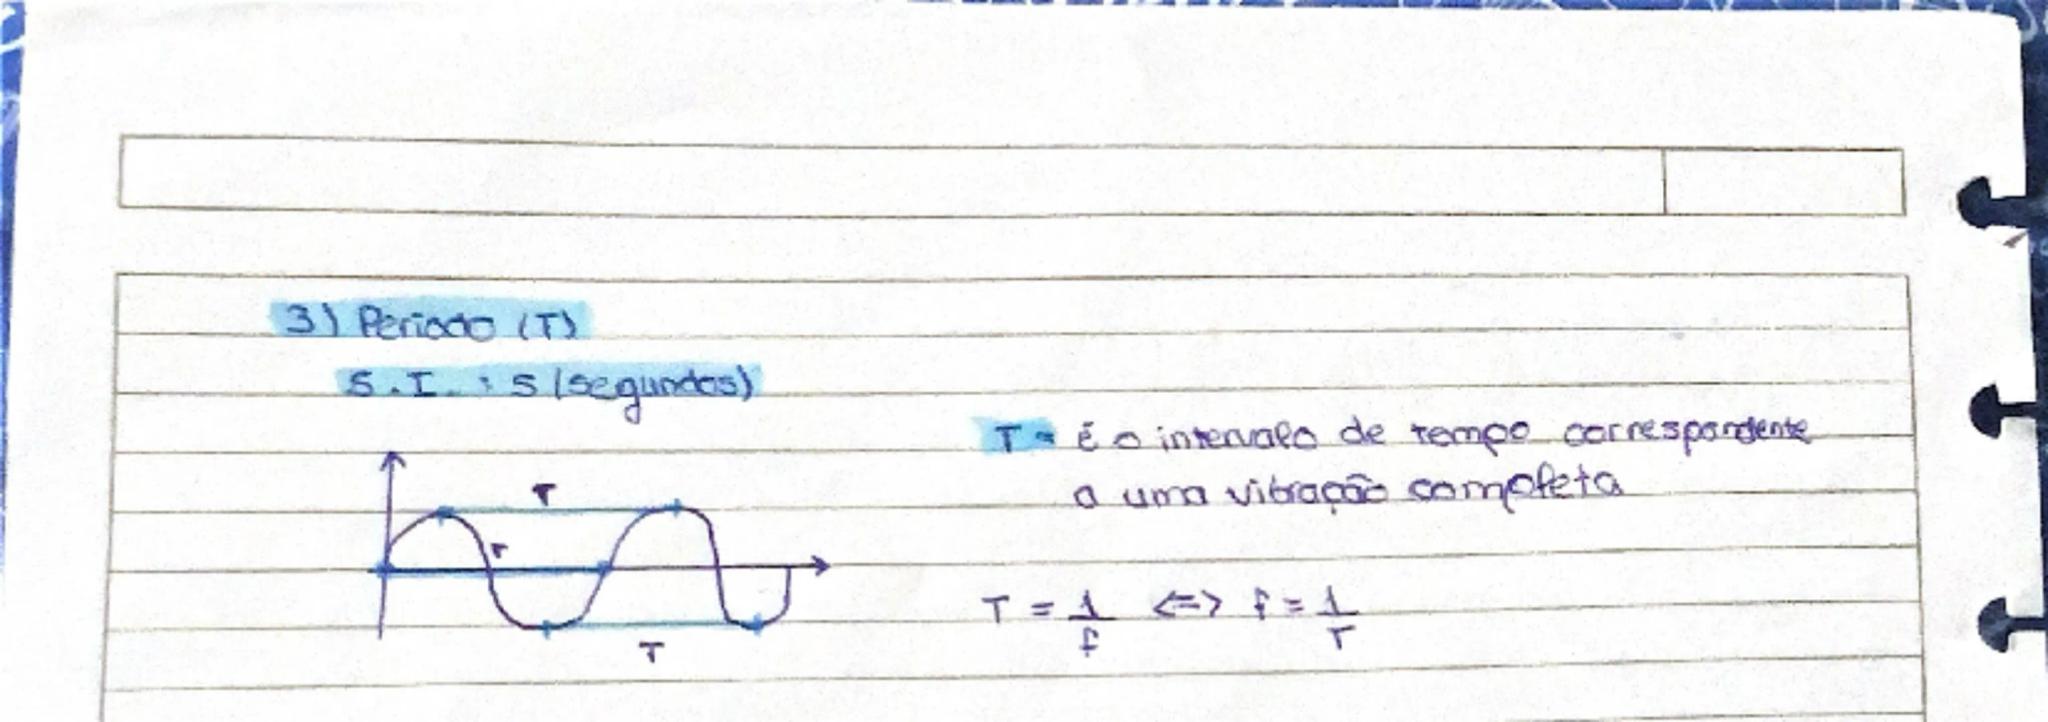 3) Período (T)
S.I. : s (segundos)
T = é o intervalo de tempo correspondente
a uma vibração completa
T
T
T
T = 1/f <=> f = 1/T